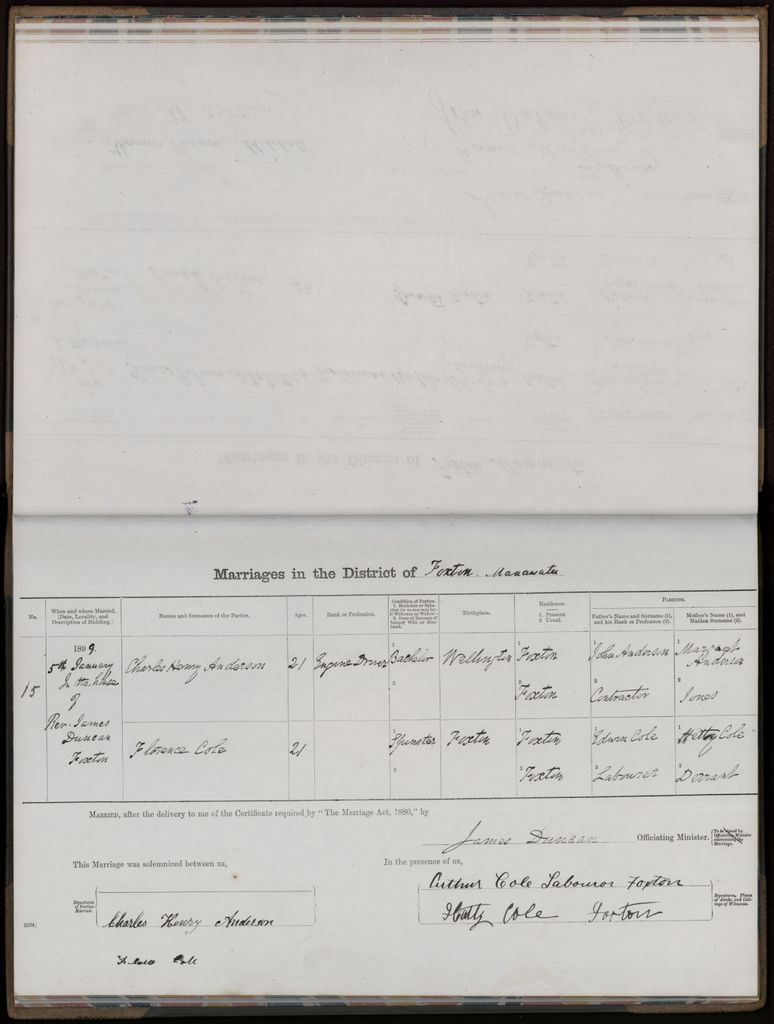 Marriages in the District of Foxton. Manawatu
No.
When and where Married. [Date, Locality, and Description of Building.]
Names and Surnames of the Parties.
Ages.
Rank or Profession.
Condition of Parties.
Birthplace.
Residence. 1. Present. 2. Usual.
PARENTS.
Father's Name and Surname (1), and his Rank or Profession (2).
Mother's Name (1), and Maiden Surname (2).
15
1899.
5th January
In the house
of
Rev. James
Duncan
Foxton
Charles Henry Anderson 21 Engine Driver 1 Bachelor Wellington 1 Foxton 1 John Anderson 1 Margaret Anderson
2 2 Foxton 2 Contractor 2 Jones
Florence Cole 21 1 Spinster Foxton 1 Foxton 1 Edwin Cole 1 Hetty Cole
2 2 Foxton 2 Labourer 2 Derrant
MARRIED, after the delivery to me of the Certificate required by "The Marriage Act, 1880," by
James Duncan Officiating Minister. [To be signed by Officiating Minister solemnizing the Marriage.
This Marriage was solemnized between us,
In the presence of us,
Signatures of Parties Married.
Charles Henry Anderson
Cole
Arthur Cole Labourer Foxton
Hetty Cole Foxton
Signatures, Place of Abode, and Calling of Witnesses.